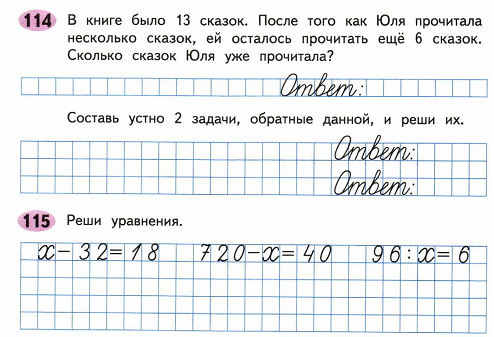 114 В книге было 13 сказок. После того как Юля прочитала
несколько сказок, ей осталось прочитать ещё 6 сказок.
Сколько сказок Юля уже прочитала?
Ответ:
Составь устно 2 задачи, обратные данной, и реши их.
Ответ:
Ответ:
115 Реши уравнения.
x-32=18 720-x=40 96:x=6